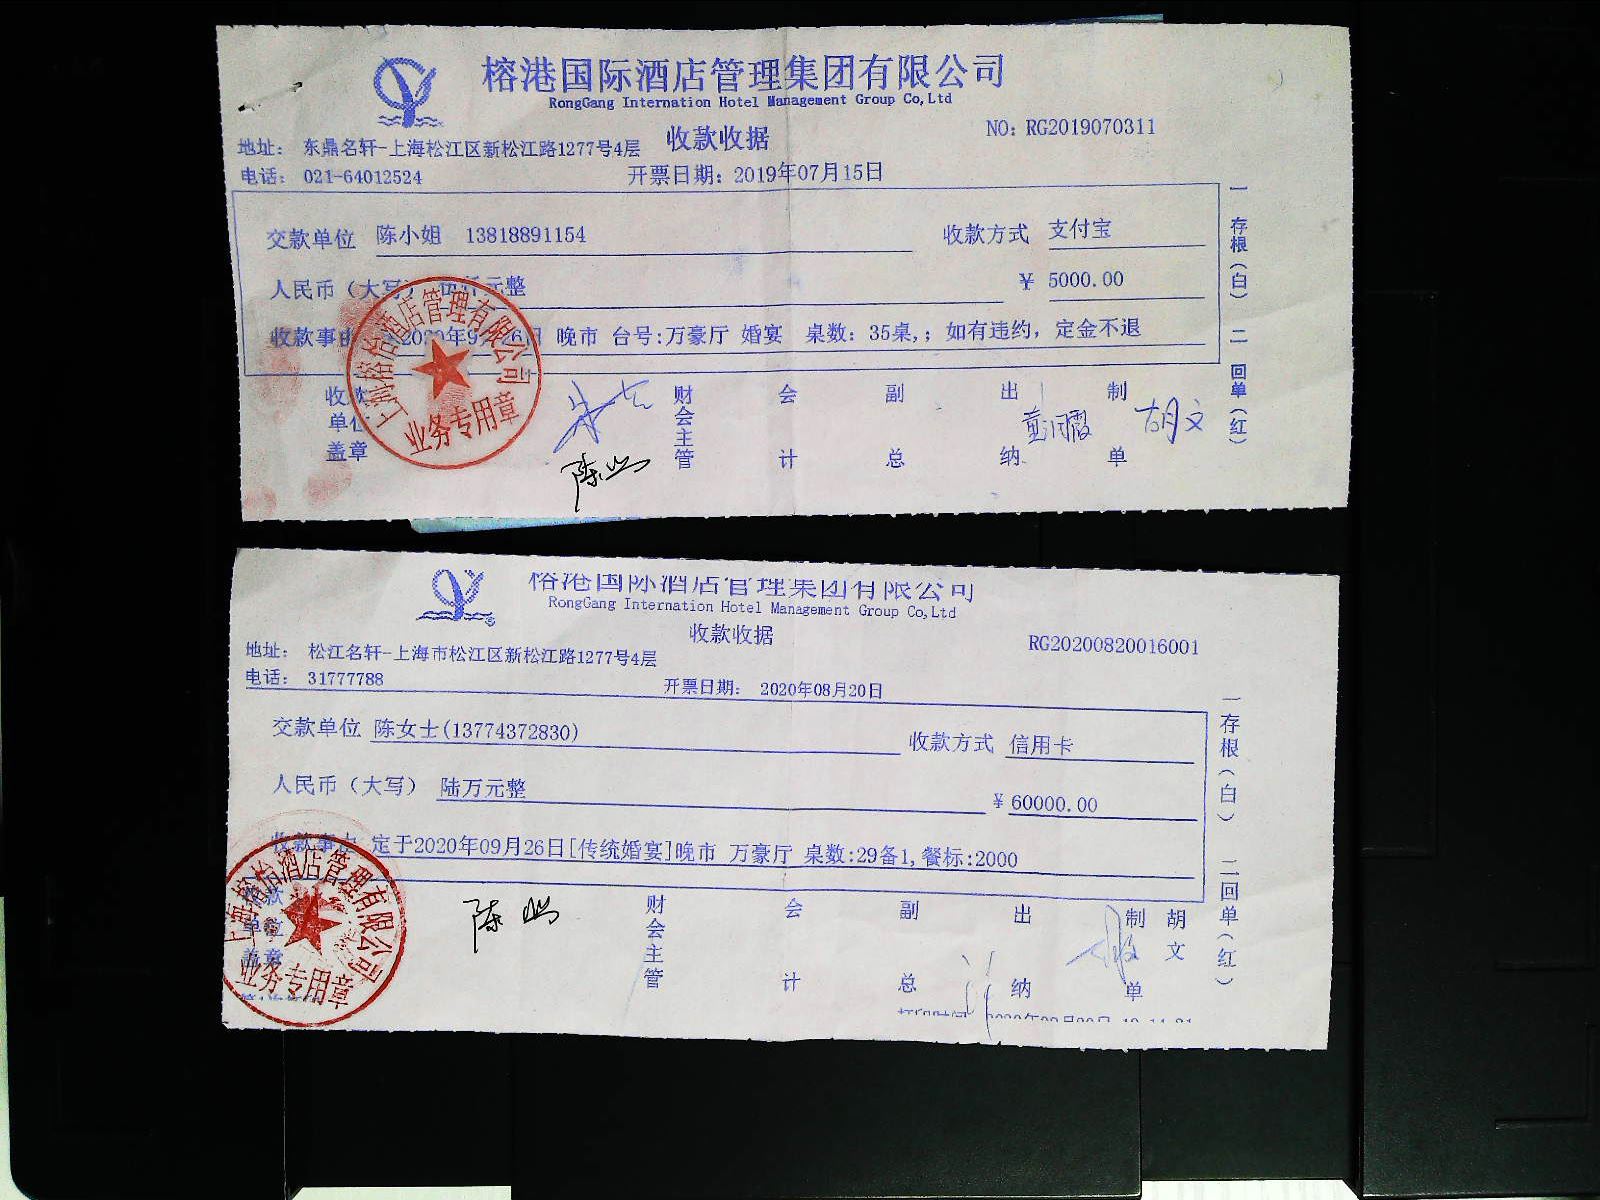 榕港国际酒店管理集团有限公司
RongGang Internation Hotel Management Group Co,Ltd
收款收据
NO: RG2019070311
地址： 东鼎名轩-上海松江区新松江路1277号4层
电话： 021-64012524
开票日期： 2019年07月15日
交款单位 陈小姐 13818891154 收款方式 支付宝
人民币（大写） 伍仟元整 ￥ 5000.00
收款事由 2020年9月26日 晚市 台号:万豪厅 婚宴 桌数: 35桌,; 如有违约, 定金不退
收款单位盖章
财会主管 会计 副总 出纳 制单
董润霞 胡文
陈
一存根（白） 二回单（红）
上海榕佰酒店管理有限公司
业务专用章
榕港国际酒店管理集团有限公司
RongGang Internation Hotel Management Group Co,Ltd
收款收据
RG20200820016001
地址： 松江名轩-上海市松江区新松江路1277号4层
电话： 31777788
开票日期： 2020年08月20日
交款单位 陈女士(13774372830) 收款方式 信用卡
人民币（大写） 陆万元整 ￥ 60000.00
收款事由 定于2020年09月26日[传统婚宴]晚市 万豪厅 桌数:29备1,餐标:2000
收款单位盖章
陈
财会主管 会计 副总 出纳 制单 胡文
一存根（白） 二回单（红）
上海榕佰酒店管理有限公司
业务专用章
打印时间